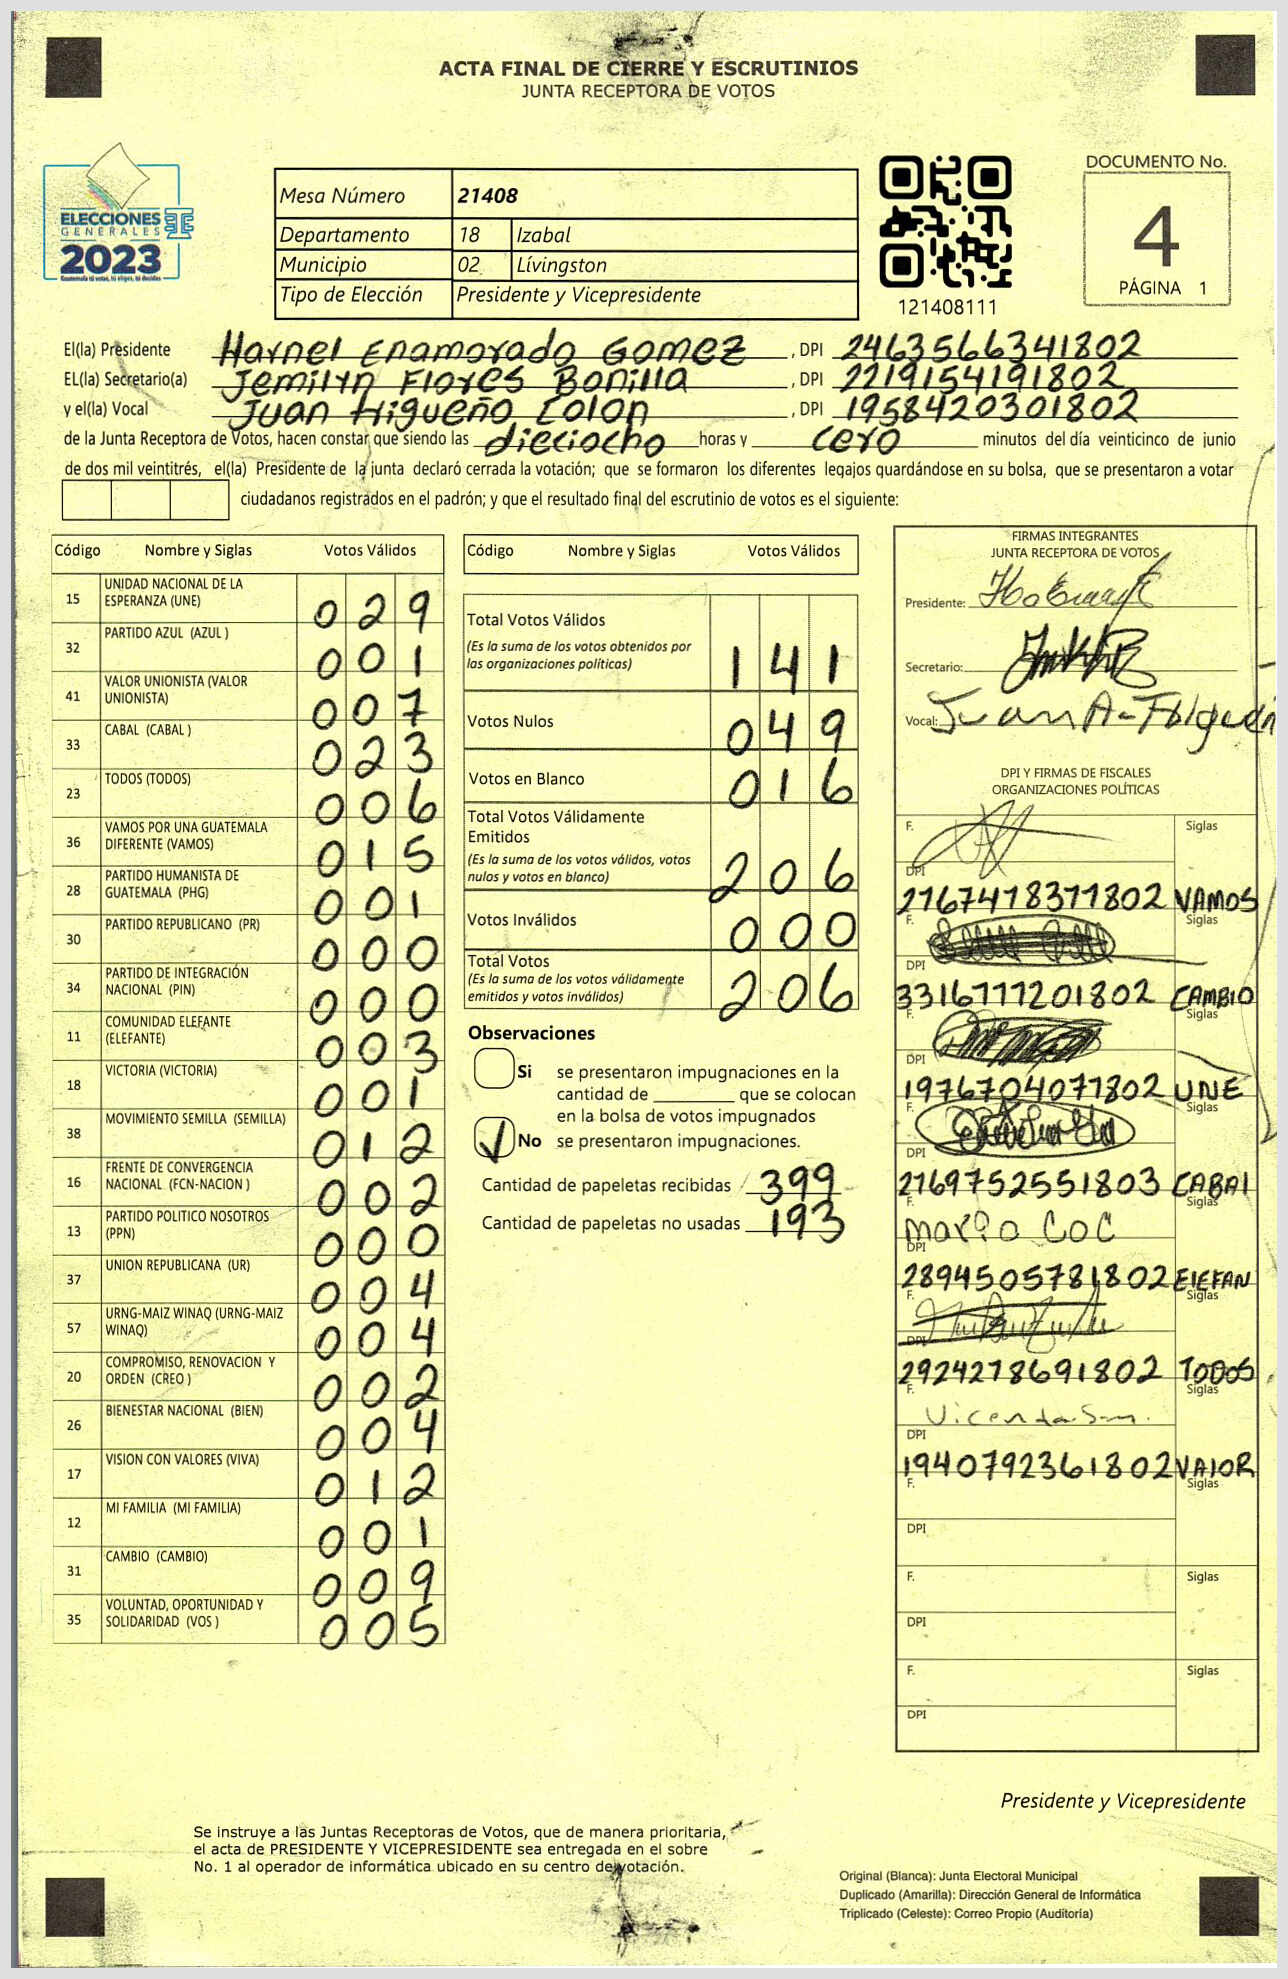 ACTA FINAL DE CIERRE Y ESCRUTINIOS
JUNTA RECEPTORA DE VOTOS
ELECCIONES
GENERALES
2023
Guatemala tú votas, tú eliges, tú decides
Mesa Número 21408
Departamento 18 Izabal
Municipio 02 Lívingston
Tipo de Elección Presidente y Vicepresidente
121408111
DOCUMENTO No.
4
PÁGINA 1
El(la) Presidente Harnel Enamorado Gomez, DPI 2463566341802
EL(la) Secretario(a) Jemilyn Flores Bonilla, DPI 2219154191802
y el(la) Vocal Juan Higueño Colon, DPI 1958420301802
de la Junta Receptora de Votos, hacen constar que siendo las dieciocho horas y cero minutos del día veinticinco de junio
de dos mil veintitrés, el(la) Presidente de la junta declaró cerrada la votación; que se formaron los diferentes legajos quardándose en su bolsa, que se presentaron a votar
ciudadanos registrados en el padrón; y que el resultado final del escrutinio de votos es el siguiente:
Código Nombre y Siglas Votos Válidos
15 UNIDAD NACIONAL DE LA ESPERANZA (UNE) 029
32 PARTIDO AZUL (AZUL ) 001
41 VALOR UNIONISTA (VALOR UNIONISTA) 007
33 CABAL (CABAL ) 023
23 TODOS (TODOS) 006
36 VAMOS POR UNA GUATEMALA DIFERENTE (VAMOS) 015
28 PARTIDO HUMANISTA DE GUATEMALA (PHG) 001
30 PARTIDO REPUBLICANO (PR) 000
34 PARTIDO DE INTEGRACIÓN NACIONAL (PIN) 000
11 COMUNIDAD ELEFANTE (ELEFANTE) 003
18 VICTORIA (VICTORIA) 001
38 MOVIMIENTO SEMILLA (SEMILLA) 012
16 FRENTE DE CONVERGENCIA NACIONAL (FCN-NACION ) 002
13 PARTIDO POLITICO NOSOTROS (PPN) 000
37 UNION REPUBLICANA (UR) 004
57 URNG-MAIZ WINAQ (URNG-MAIZ WINAQ) 004
20 COMPROMISO, RENOVACION Y ORDEN (CREO ) 002
26 BIENESTAR NACIONAL (BIEN) 004
17 VISION CON VALORES (VIVA) 012
12 MI FAMILIA (MI FAMILIA) 001
31 CAMBIO (CAMBIO) 009
35 VOLUNTAD, OPORTUNIDAD Y SOLIDARIDAD (VOS ) 005
Código Nombre y Siglas Votos Válidos
Total Votos Válidos 141
(Es la suma de los votos obtenidos por
las organizaciones políticas)
Votos Nulos 049
Votos en Blanco 016
Total Votos Válidamente
Emitidos 206
(Es la suma de los votos válidos, votos
nulos y votos en blanco)
Votos Inválidos 000
Total Votos 206
(Es la suma de los votos válidamente
emitidos y votos inválidos)
Observaciones
Si se presentaron impugnaciones en la
cantidad de ________ que se colocan
en la bolsa de votos impugnados
No se presentaron impugnaciones.
Cantidad de papeletas recibidas 399
Cantidad de papeletas no usadas 193
FIRMAS INTEGRANTES
JUNTA RECEPTORA DE VOTOS
Presidente:
Secretario:
Vocal: Juan A-
DPI Y FIRMAS DE FISCALES
ORGANIZACIONES POLÍTICAS
F. Siglas
DPI
2767478377802 VAMOS
F. Siglas
DPI
3316777201802 CAMBIO
F. Siglas
DPI
1976704077802 UNE
F. Siglas
DPI
2769752551803 CABAl
F. Siglas
Mario COC
DPI
2894505781802 ElEFAN
F. Siglas
DPI
2924278691802 TODOS
F. Siglas
DPI
1940792361802 VAlOR
F. Siglas
DPI
F. Siglas
DPI
F. Siglas
DPI
Presidente y Vicepresidente
Se instruye a las Juntas Receptoras de Votos, que de manera prioritaria,
el acta de PRESIDENTE Y VICEPRESIDENTE sea entregada en el sobre
No. 1 al operador de informática ubicado en su centro de votación.
Original (Blanca): Junta Electoral Municipal
Duplicado (Amarilla): Dirección General de Informática
Triplicado (Celeste): Correo Propio (Auditoría)